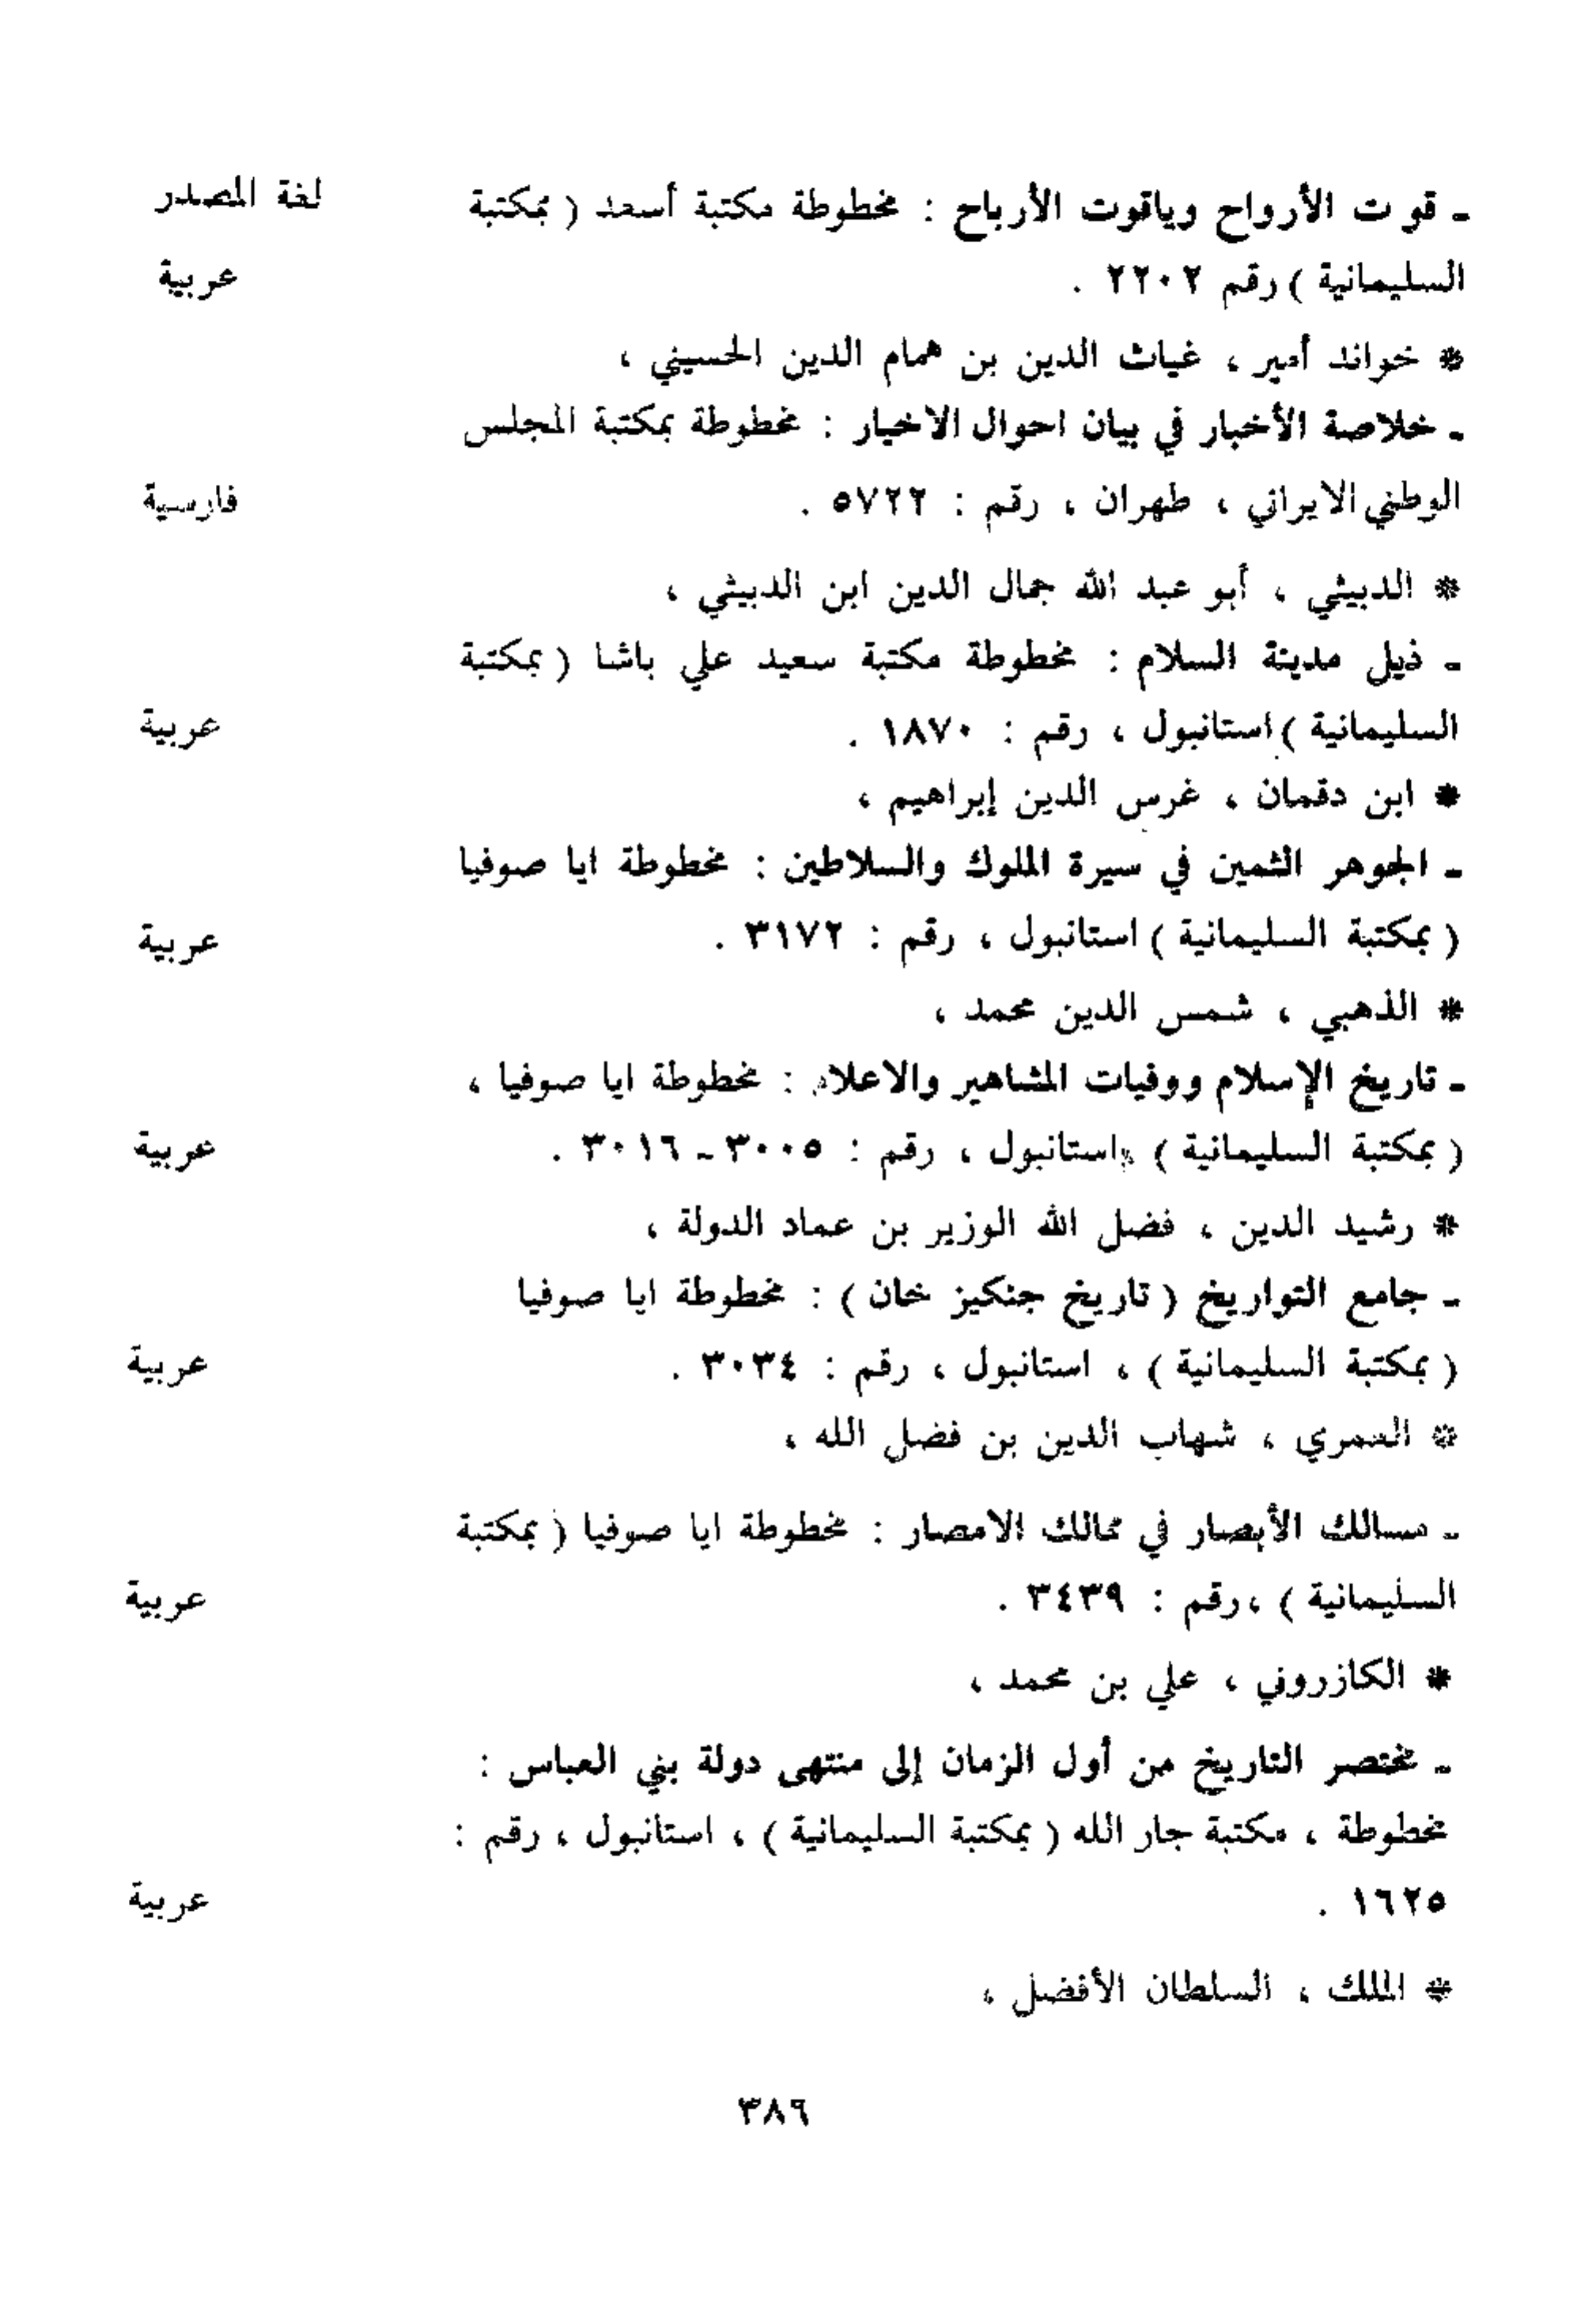 ـ قوت الأرواح وياقوت الأرباح : مخطوطة مكتبة أسعد ( بمكتبة لغة المصدر
السليمانية ) رقم ٢٢٠٢ . عربية
* خواند أمير ، غياث الدين بن همام الدين الحسيني ،
ـ خلاصة الأخبار في بيان احوال الاخيار : مخطوطة بمكتبة المجلس
الوطني الايراني ، طهران ، رقم : ٥٧٢٢ . فارسية
* الدبيثي ، أبو عبد الله جمال الدين ابن الدبيثي ،
ـ ذيل مدينة السلام : مخطوطة مكتبة سعيد علي باشا ( بمكتبة
السليمانية ) استانبول ، رقم : ١٨٧٠ . عربية
* ابن دقمان ، غرس الدين إبراهيم ،
ـ الجوهر الثمين في سيرة الملوك والسلاطين : مخطوطة ايا صوفيا
( بمكتبة السليمانية ) استانبول ، رقم : ٣١٧٢ . عربية
* الذهبي ، شمس الدين محمد ،
ـ تاريخ الإسلام ووفيات المشاهير والاعلام : مخطوطة ايا صوفيا ،
( بمكتبة السليمانية ) استانبول ، رقم : ٣٠٠٥ ـ ٣٠١٦ . عربية
* رشيد الدين ، فضل الله الوزير بن عماد الدولة ،
ـ جامع التواريخ ( تاريخ جنكيز خان ) : مخطوطة ايا صوفيا
( بمكتبة السليمانية ) ، استانبول ، رقم : ٣٠٣٤ . عربية
* العمري ، شهاب الدين بن فضل الله ،
ـ مسالك الأبصار في ممالك الامصار : مخطوطة ايا صوفيا ( بمكتبة
السليمانية ) ، رقم : ٣٤٣٩ . عربية
* الكازروني ، علي بن محمد ،
ـ مختصر التاريخ من أول الزمان إلى منتهى دولة بني العباس :
مخطوطة ، مكتبة جار الله ( بمكتبة السليمانية ) ، استانبول ، رقم :
١٦٢٥ . عربية
* الملك ، السلطان الأفضل ،
٣٨٦